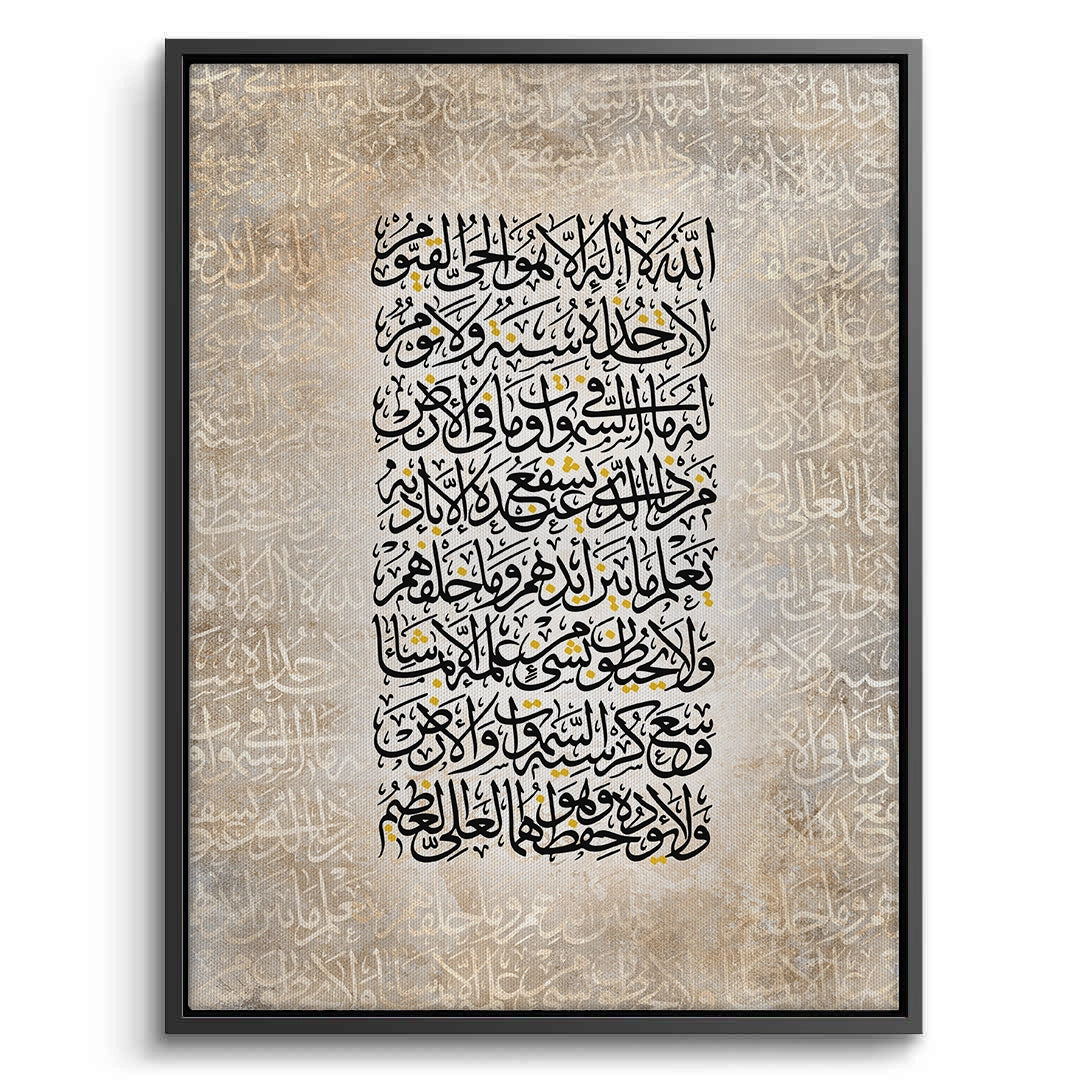 اللَّهُ لَا إِلَٰهَ إِلَّا هُوَ الْحَيُّ الْقَيُّومُ
لَا تَأْخُذُهُ سِنَةٌ وَلَا نَوْمٌ
لَهُ مَا فِي السَّمَوَاتِ وَمَا فِي الْأَرْضِ
مَن ذَا الَّذِي يَشْفَعُ عِندَهُ إِلَّا بِإِذْنِهِ
يَعْلَمُ مَا بَيْنَ أَيْدِيهِمْ وَمَا خَلْفَهُمْ
وَلَا يُحِيطُونَ بِشَيْءٍ مِنْ عِلْمِهِ إِلَّا بِمَا شَاءَ
وَسِعَ كُرْسِيُّهُ السَّمَوَاتِ وَالْأَرْضَ
وَلَا يَئُودُهُ حِفْظُهُمَا وَهُوَ الْعَلِيُّ الْعَظِيمُ